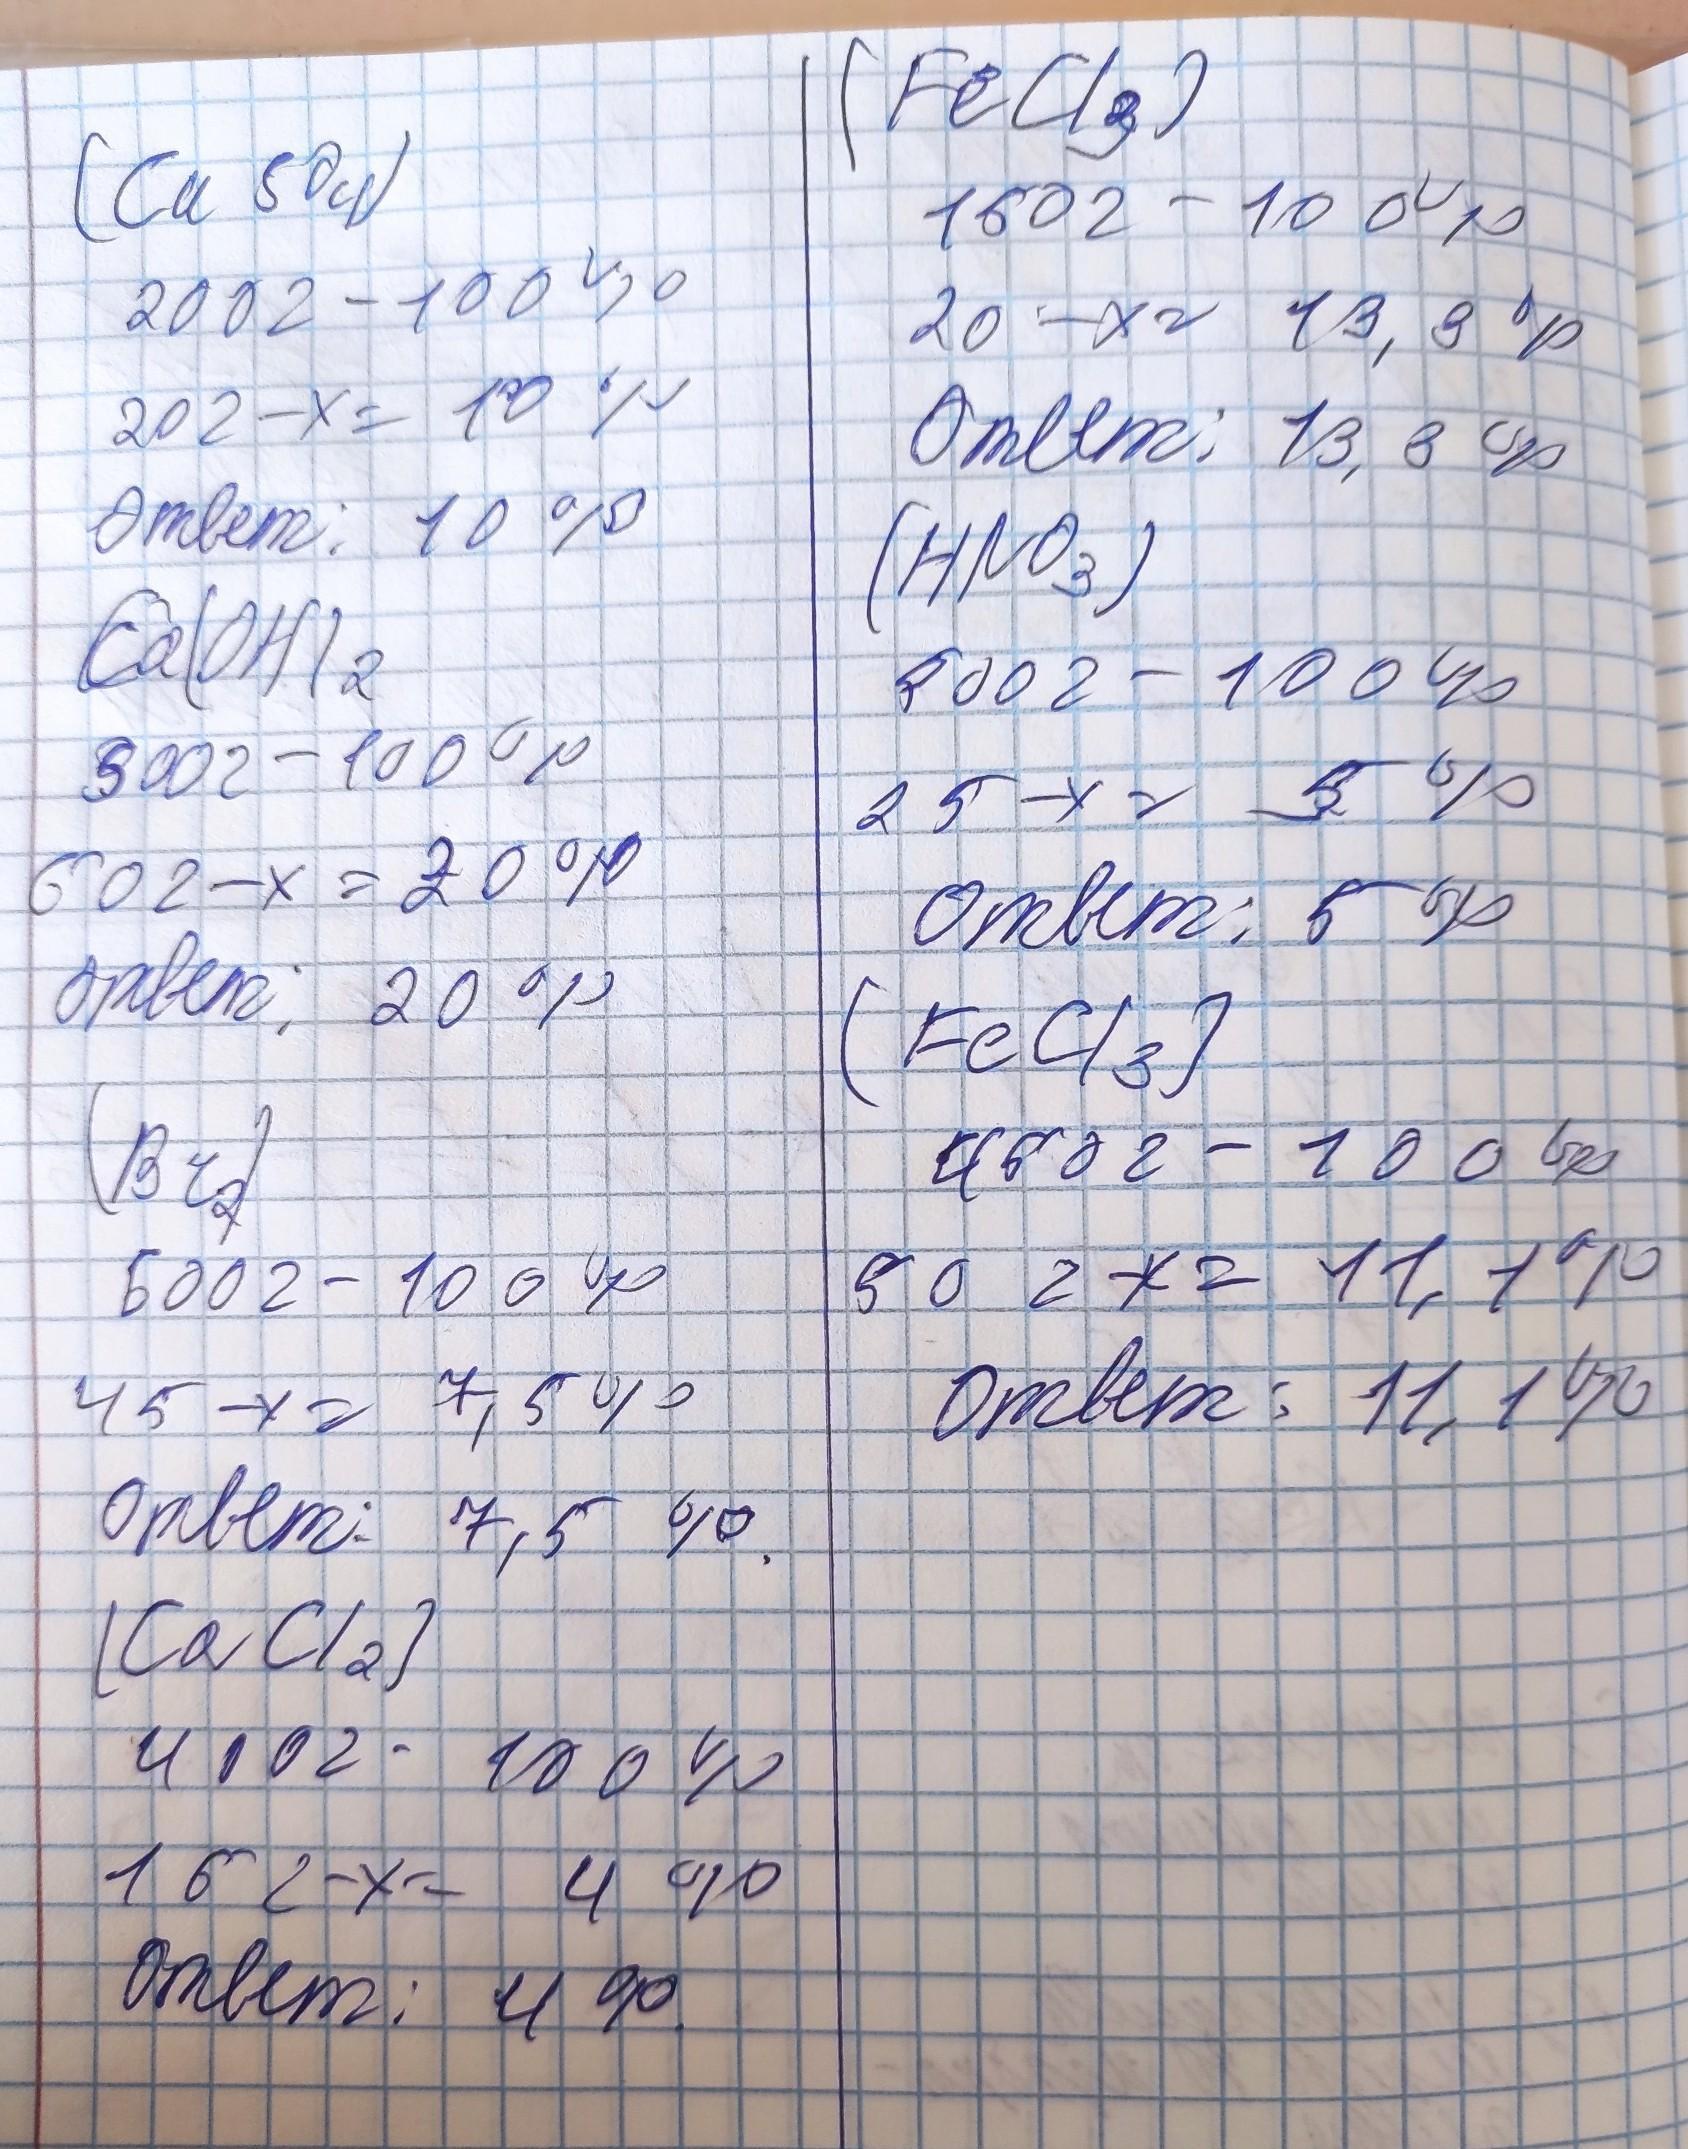 (CuSO4)
200г - 100%
20г - x = 10%
Ответ: 10%
Ca(OH)2
300г - 100%
60г - x = 20%
Ответ: 20%
(Br2)
600г - 100%
45 - x = 7,5%
Ответ: 7,5%.
(CaCl2)
400г - 100%
16г - x = 4%
Ответ: 4%.
(FeCl3)
150г - 100%
20 - x = 13,3%
Ответ: 13,3%
(HNO3)
500г - 100%
25 - x = 5%
Ответ: 5%
(FeCl3)
450г - 100%
50г - x = 11,1%
Ответ: 11,1%